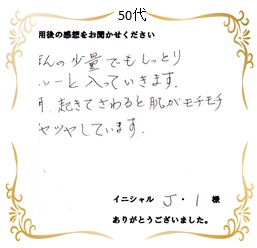 50代
用後の感想をお聞かせください
んの少量でもしっとり
ーと入っていきます.
起きてさわると肌がモチモチ
ヤツヤしています.
イニシャル J・I 様
ありがとうございました。